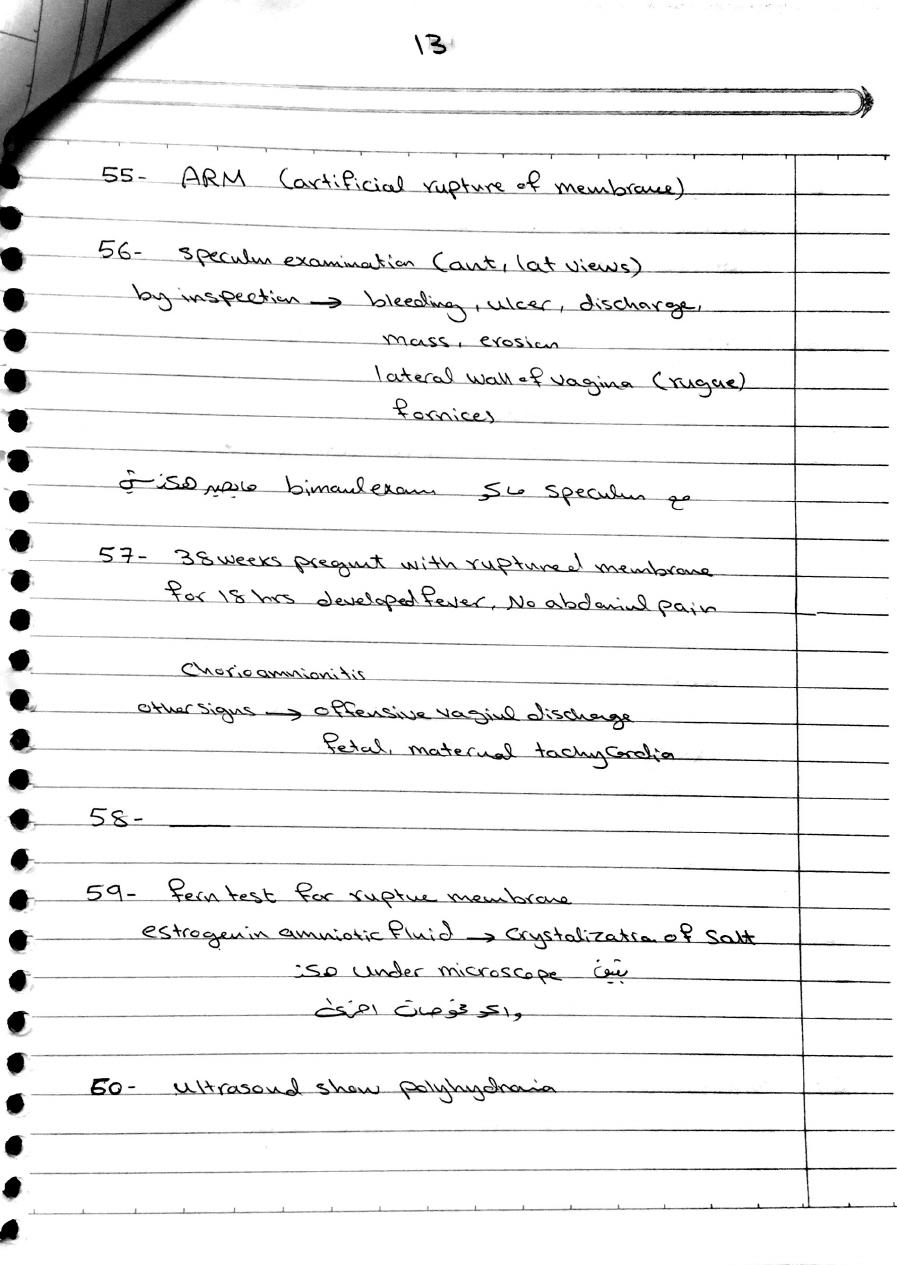 13
55- ARM (artificial rupture of membrane)
56- speculum examination (ant, lat views)
by inspection → bleeding, ulcer, discharge,
mass, erosion
lateral wall of vagina (rugae)
fornices
مع speculum ماكو bimanul exam
57- 38 weeks pregunt with ruptured membrane
for 18 hrs developed fever, No abdominul pain
Chorioamnionitis
other signs → offensive vaginul discharge
fetal, maternal tachycardia
58- ___
59- fern test for ruptue membrane
estrogen in amniotic fluid → Crystalization of Salt
تبين under microscope هكذ
واكو فحوصات اخرى
60- ultrasound show polyhydramnia